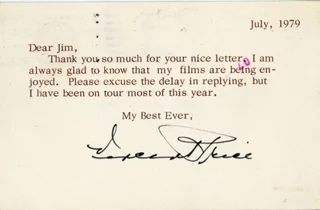 July, 1979
Dear Jim,
Thank you so much for your nice letter. I am
always glad to know that my films are being en-
joyed. Please excuse the delay in replying, but
I have been on tour most of this year.
My Best Ever,
Vincent Price